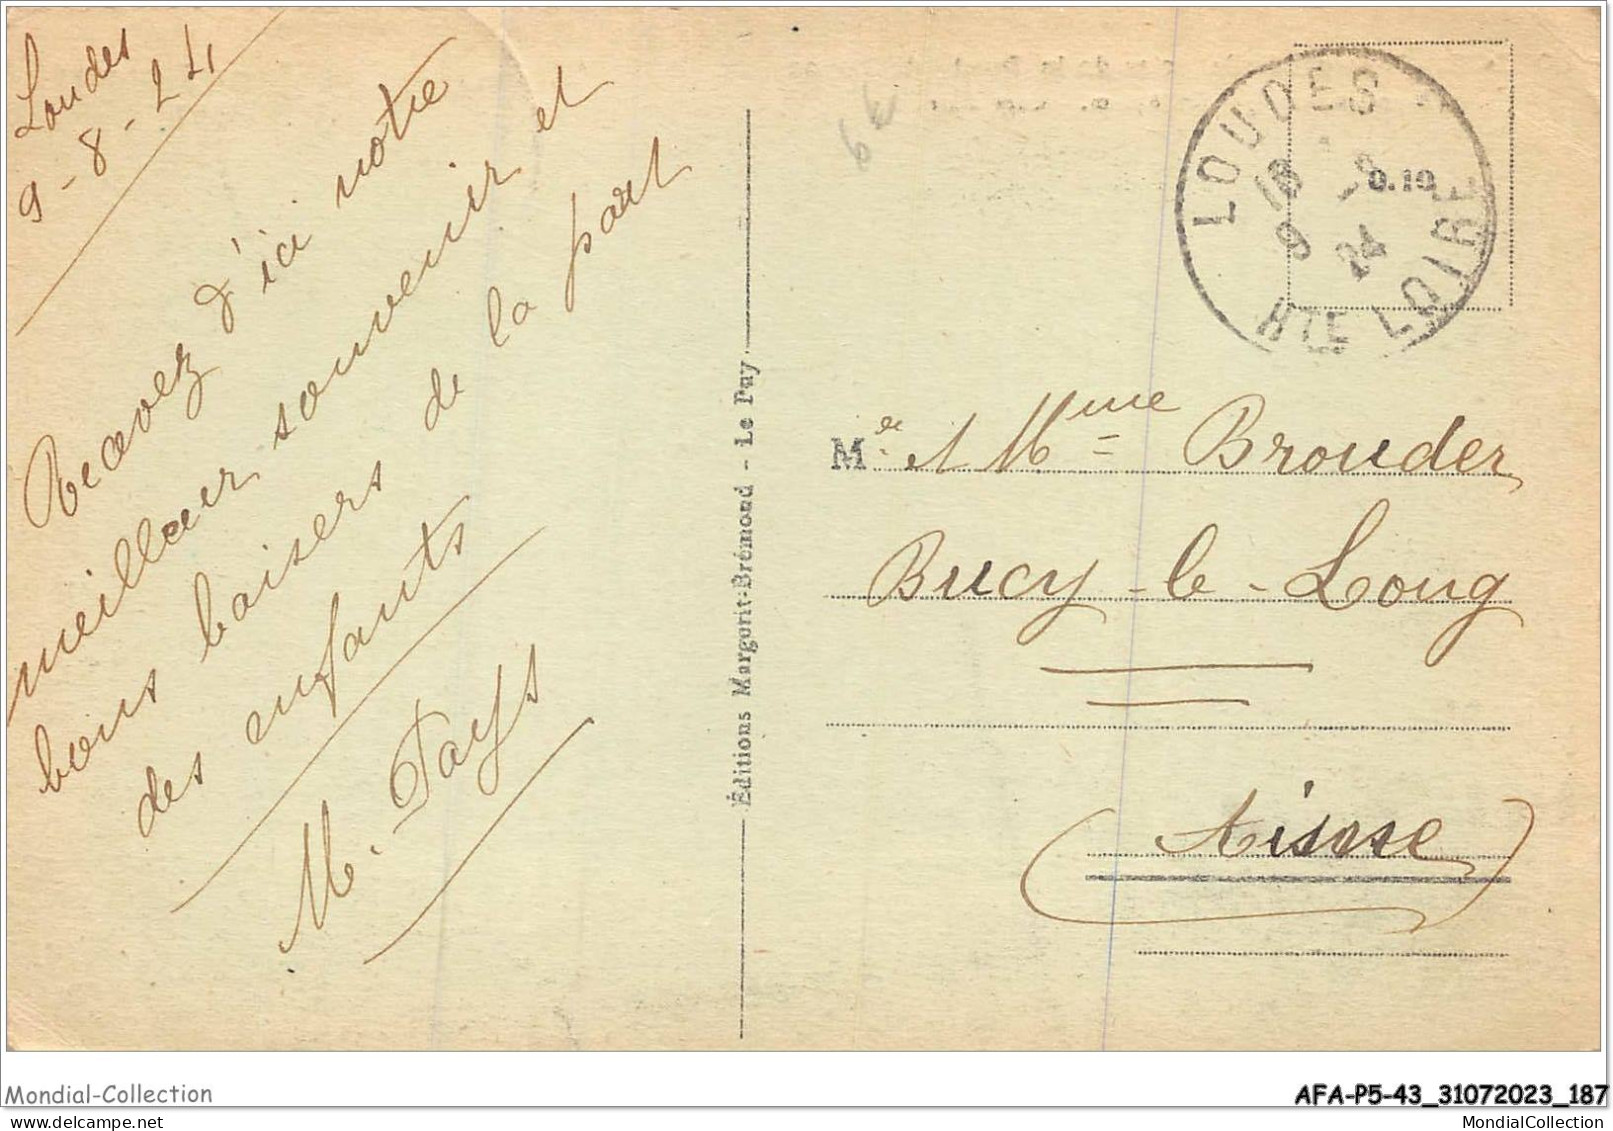 Loudes
9-8-24
Recevez d'ici notre
meilleur souvenir et
bons baisers de la part
des enfants
M. Pays
Éditions Margerit-Brémond - Le Puy
LOUDES
18
9 -8
24
HTE LOIRE
0.10
Mr et Mme Brouder
Bucy-le-Long
Aisne
Mondial-Collection
AFA-P5-43_31072023_187
MondialCollection